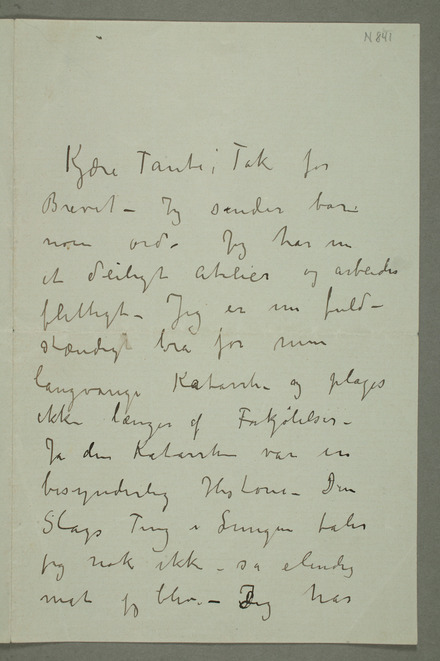 N 841
Kjære Tante; Tak for
Brevet – Jeg sender bare
noen ord. Jeg har nu
et deiligt Atelier og arbeider
flittigt – Jeg er nu fuld-
stændigt bra for min
langvarige Katarrh og plages
ikke længer af Forkjølelser –
Ja den Katarrhen var en
besynderlig Historie – Den
Slags Ting i Lungen taler
jeg nok ikke – så elendig
mat jeg blev – Jeg har